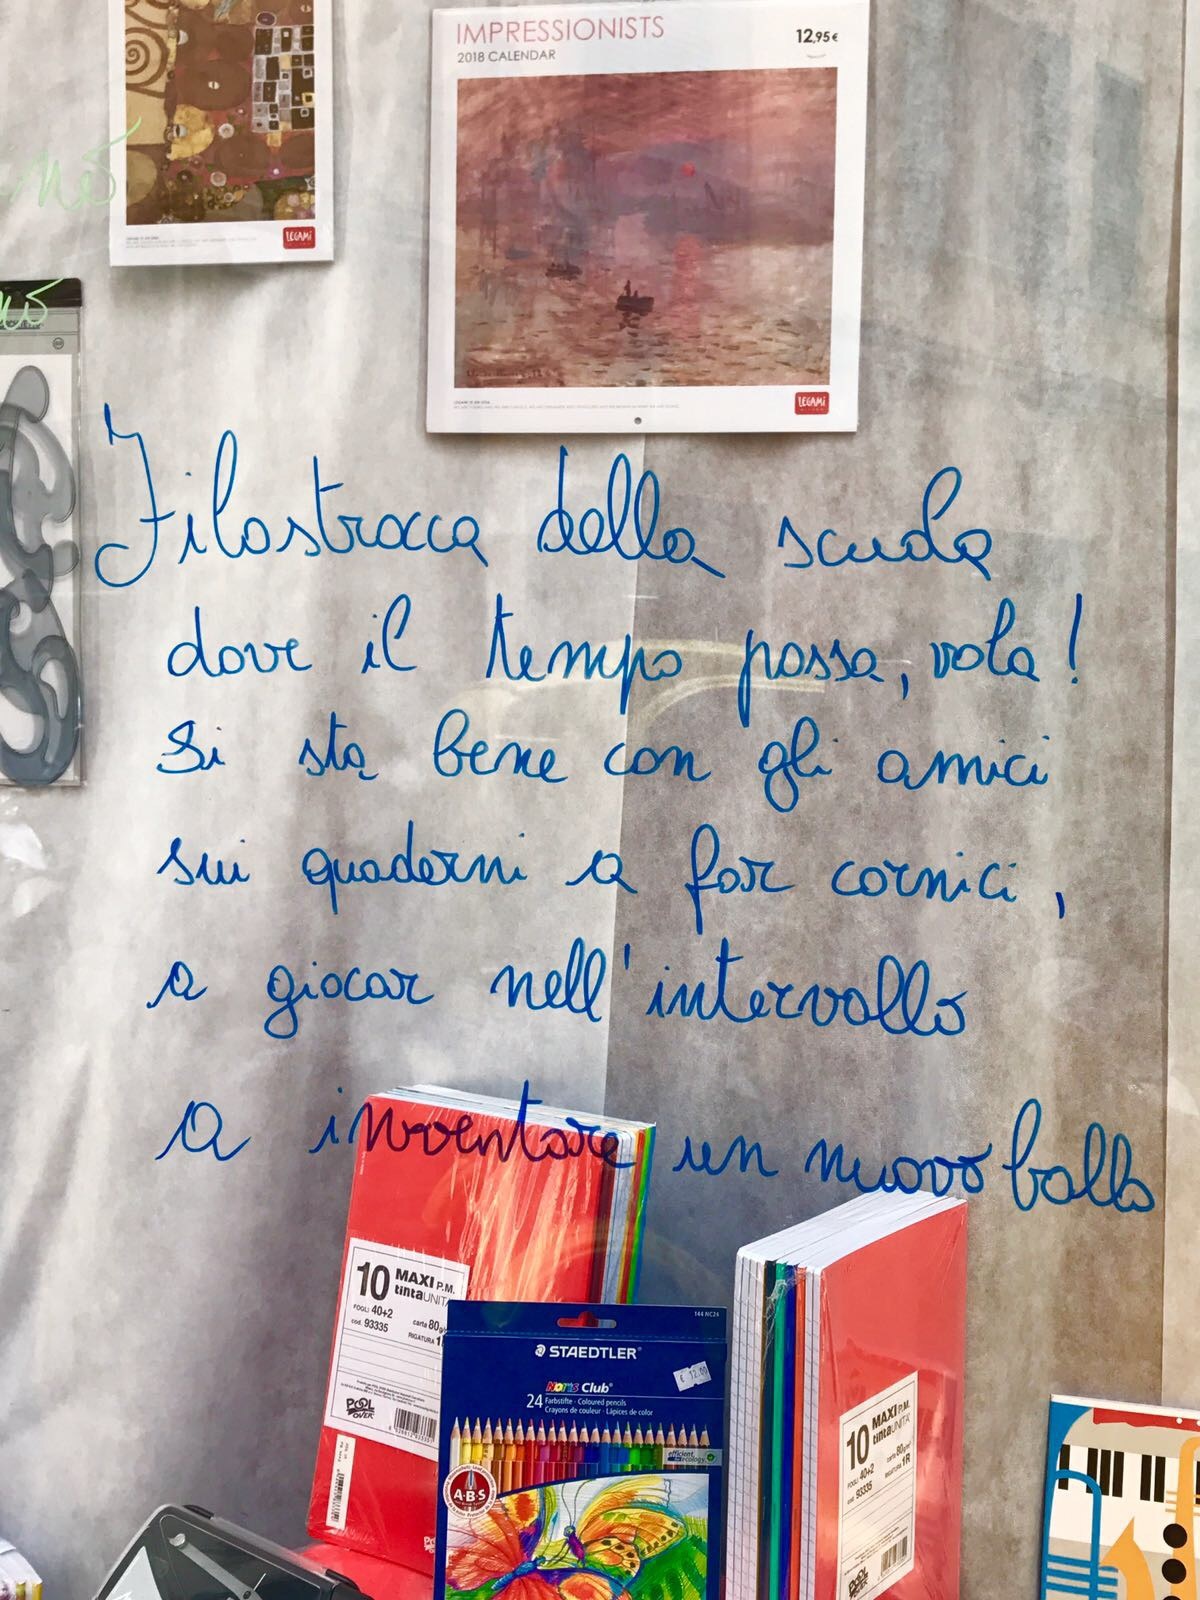 IMPRESSIONISTS
2018 CALENDAR
12,95€
LEGAMI
LEGAMI
Filastrocca della scuola
dove il tempo passa, vola!
Si sta bene con gli amici
sui quaderni a far cornici,
a giocar nell'intervallo
a inventare un nuovo ballo
10 MAXI P.M.
tintaUNITA'
FOGLI 40+2 carta 80g/
cod. 93335 RIGATURA 1
POOL OVER
144 NC24
STAEDTLER
€ 12,00
Noris Club
24 Farbstifte · Coloured pencils
Crayons de couleur · Lápices de color
efficient for ecology
A·B·S
10 MAXI P.M.
tintaUNITA'
FOGLI 40+2 carta 80g/
cod. 93335 RIGATURA 1R
POOL OVER